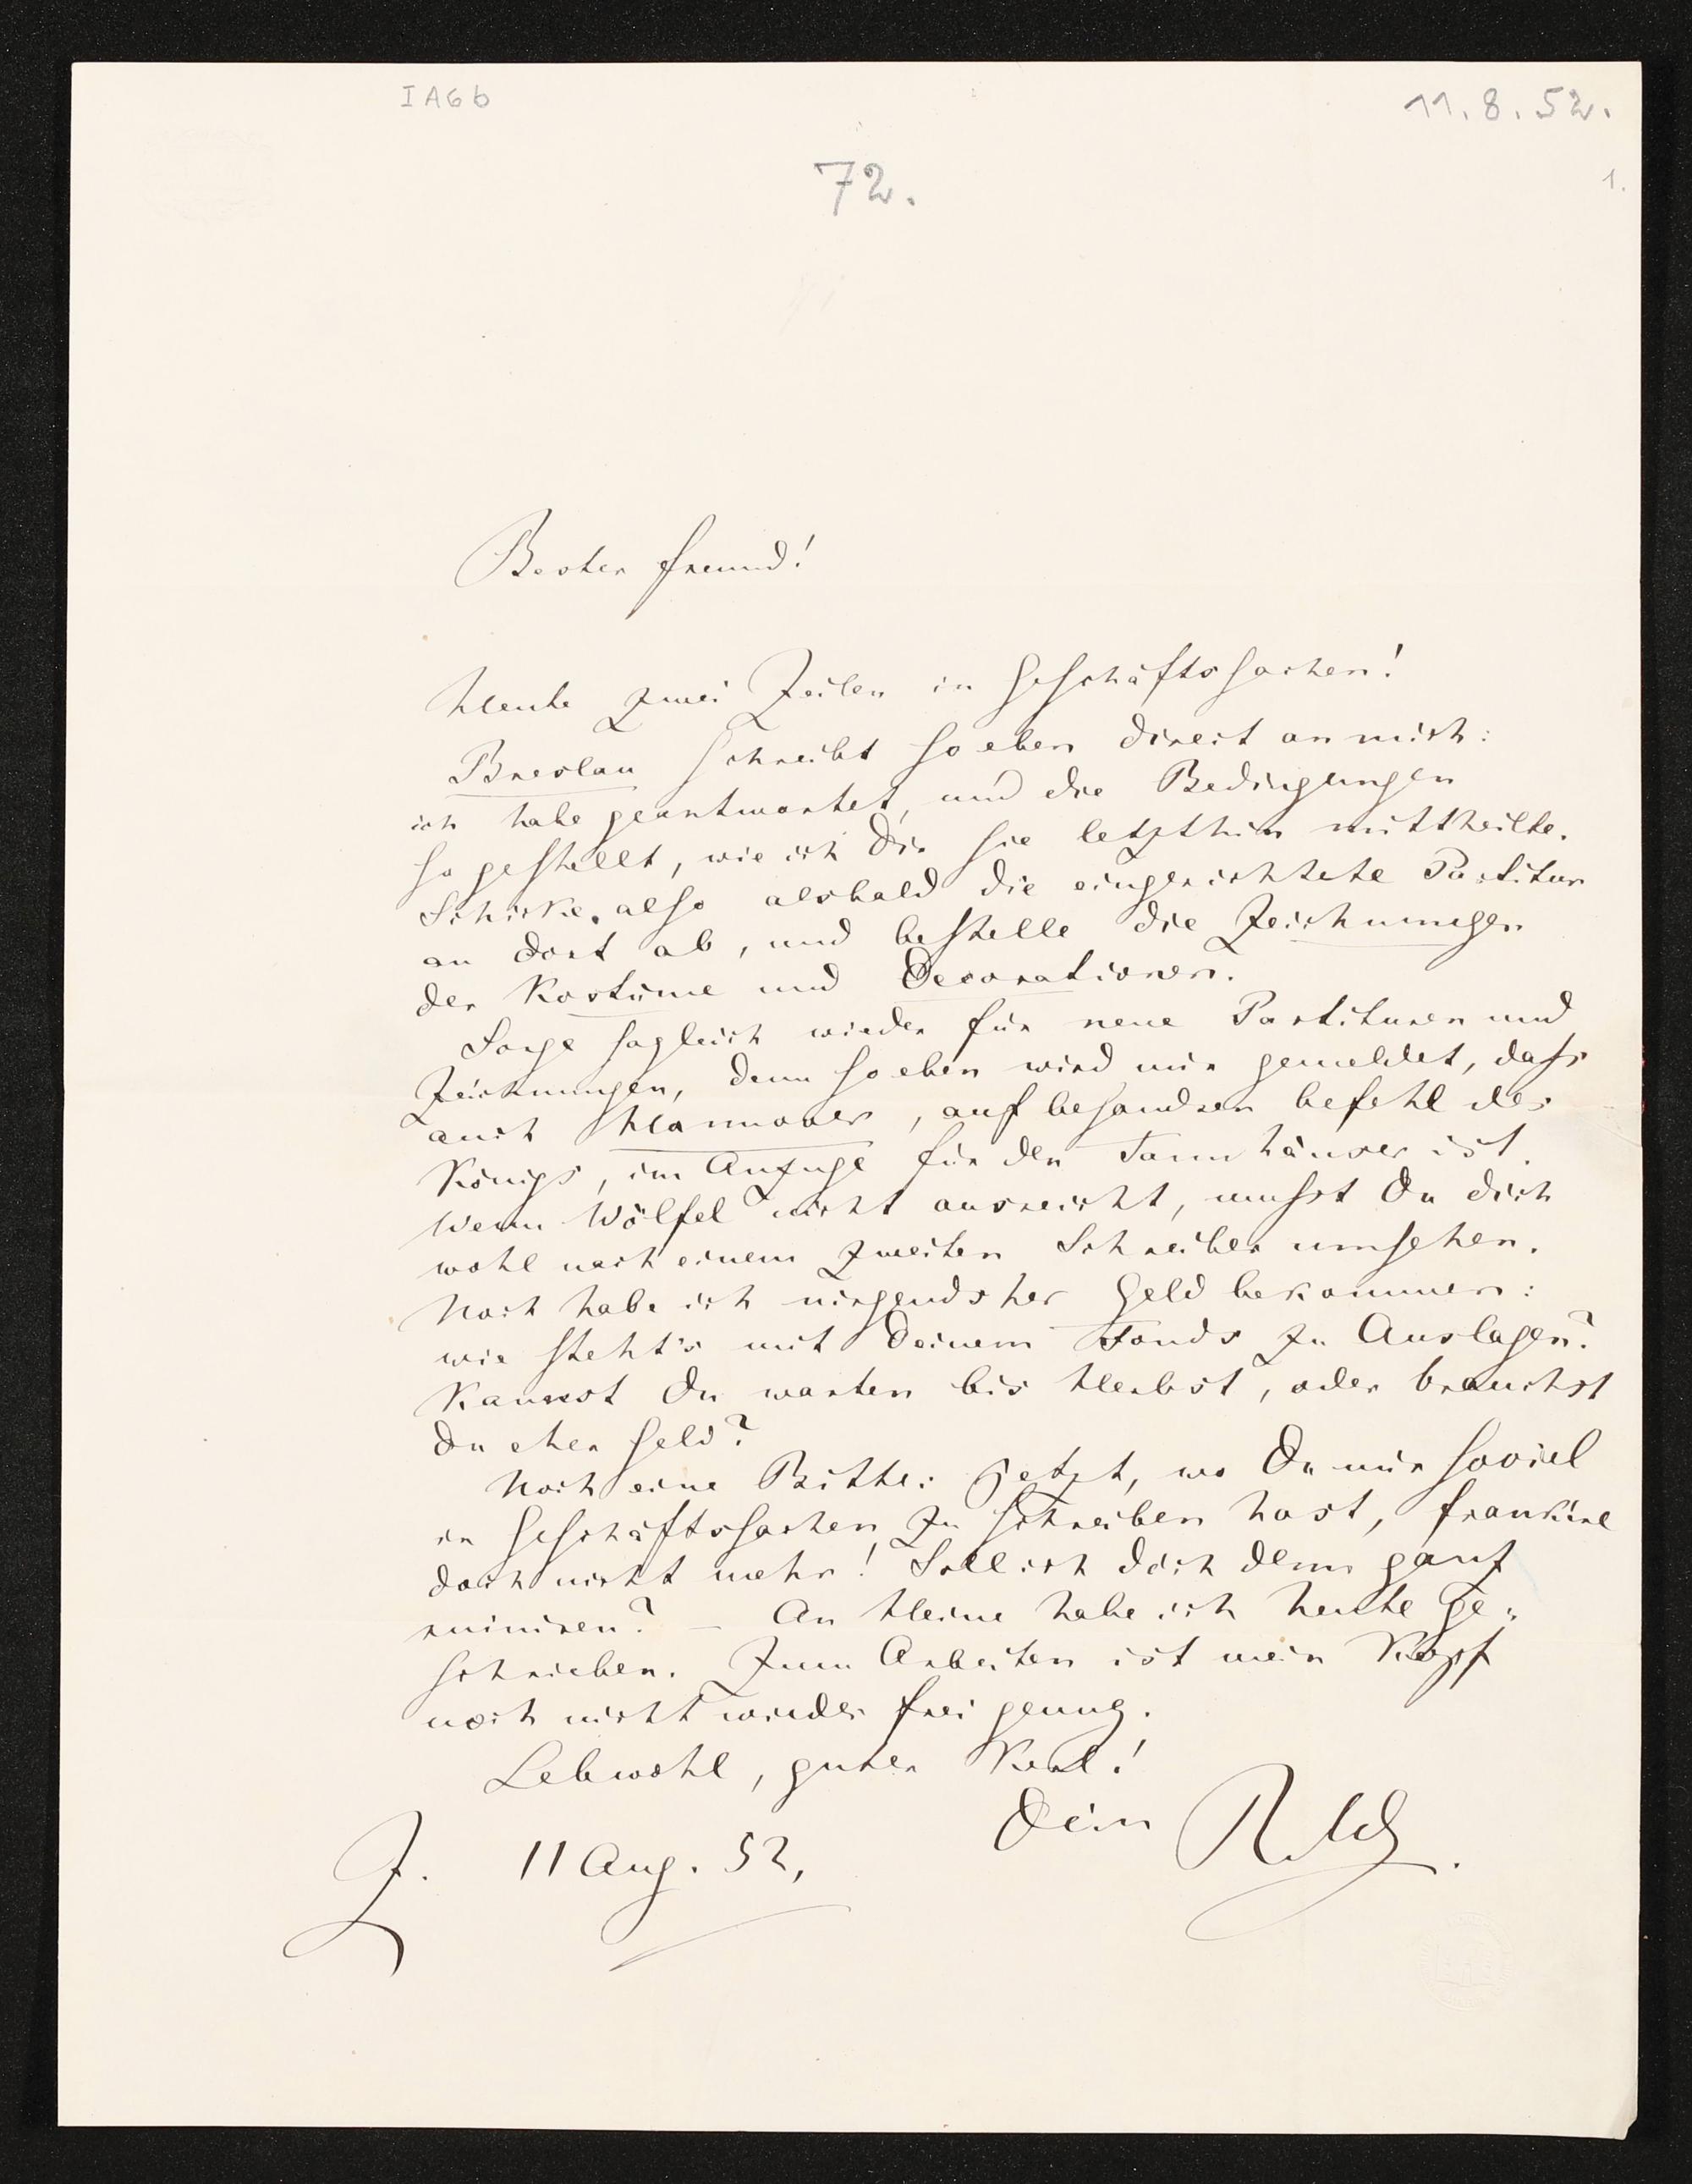 I A 6 b
11. 8. 52.
1.
72.
Bester Freund!
Heute zwei Zeilen in Geschäftssachen!
Breslau schreibt so eben direct an mich:
ich habe geantwortet, und die Bedingungen
so gestellt, wie ich Dir sie letzthin mittheilte.
Schicke also alsbald die eingerichtete Partitur
an dort ab, und bestelle die Zeichnungen
der Kostüme und Decorationen.
Sorge sogleich wieder für neue Partituren und
Zeichnungen, denn so eben wird mir gemeldet, dass
auch Hannover, auf besondren befehl des
Königs, im Anzuge für den Tannhäuser ist.
Wenn Wölfel nicht ausreicht, musst Du dich
wohl nach einem zweiten Schreiber umsehen.
Noch habe ich nirgendsher Geld bekommen:
wie steht's mit Deinem Fonds zu Auslagen?
Kannst Du warten bis Herbst, oder brauchst
Du eher Geld?
Noch eine Bitte: jetzt, wo Du mir soviel
in Geschäftssachen zu schreiben hast, frankire
doch nicht mehr! Soll ich dich denn ganz
ruiniren? — An Heine habe ich heute ge-
schrieben. Zum Arbeiten ist mein Kopf
noch nicht wieder frei genug.
Lebwohl, guter Kerl!
Dein R. W.
Z. 11 Aug. 52,